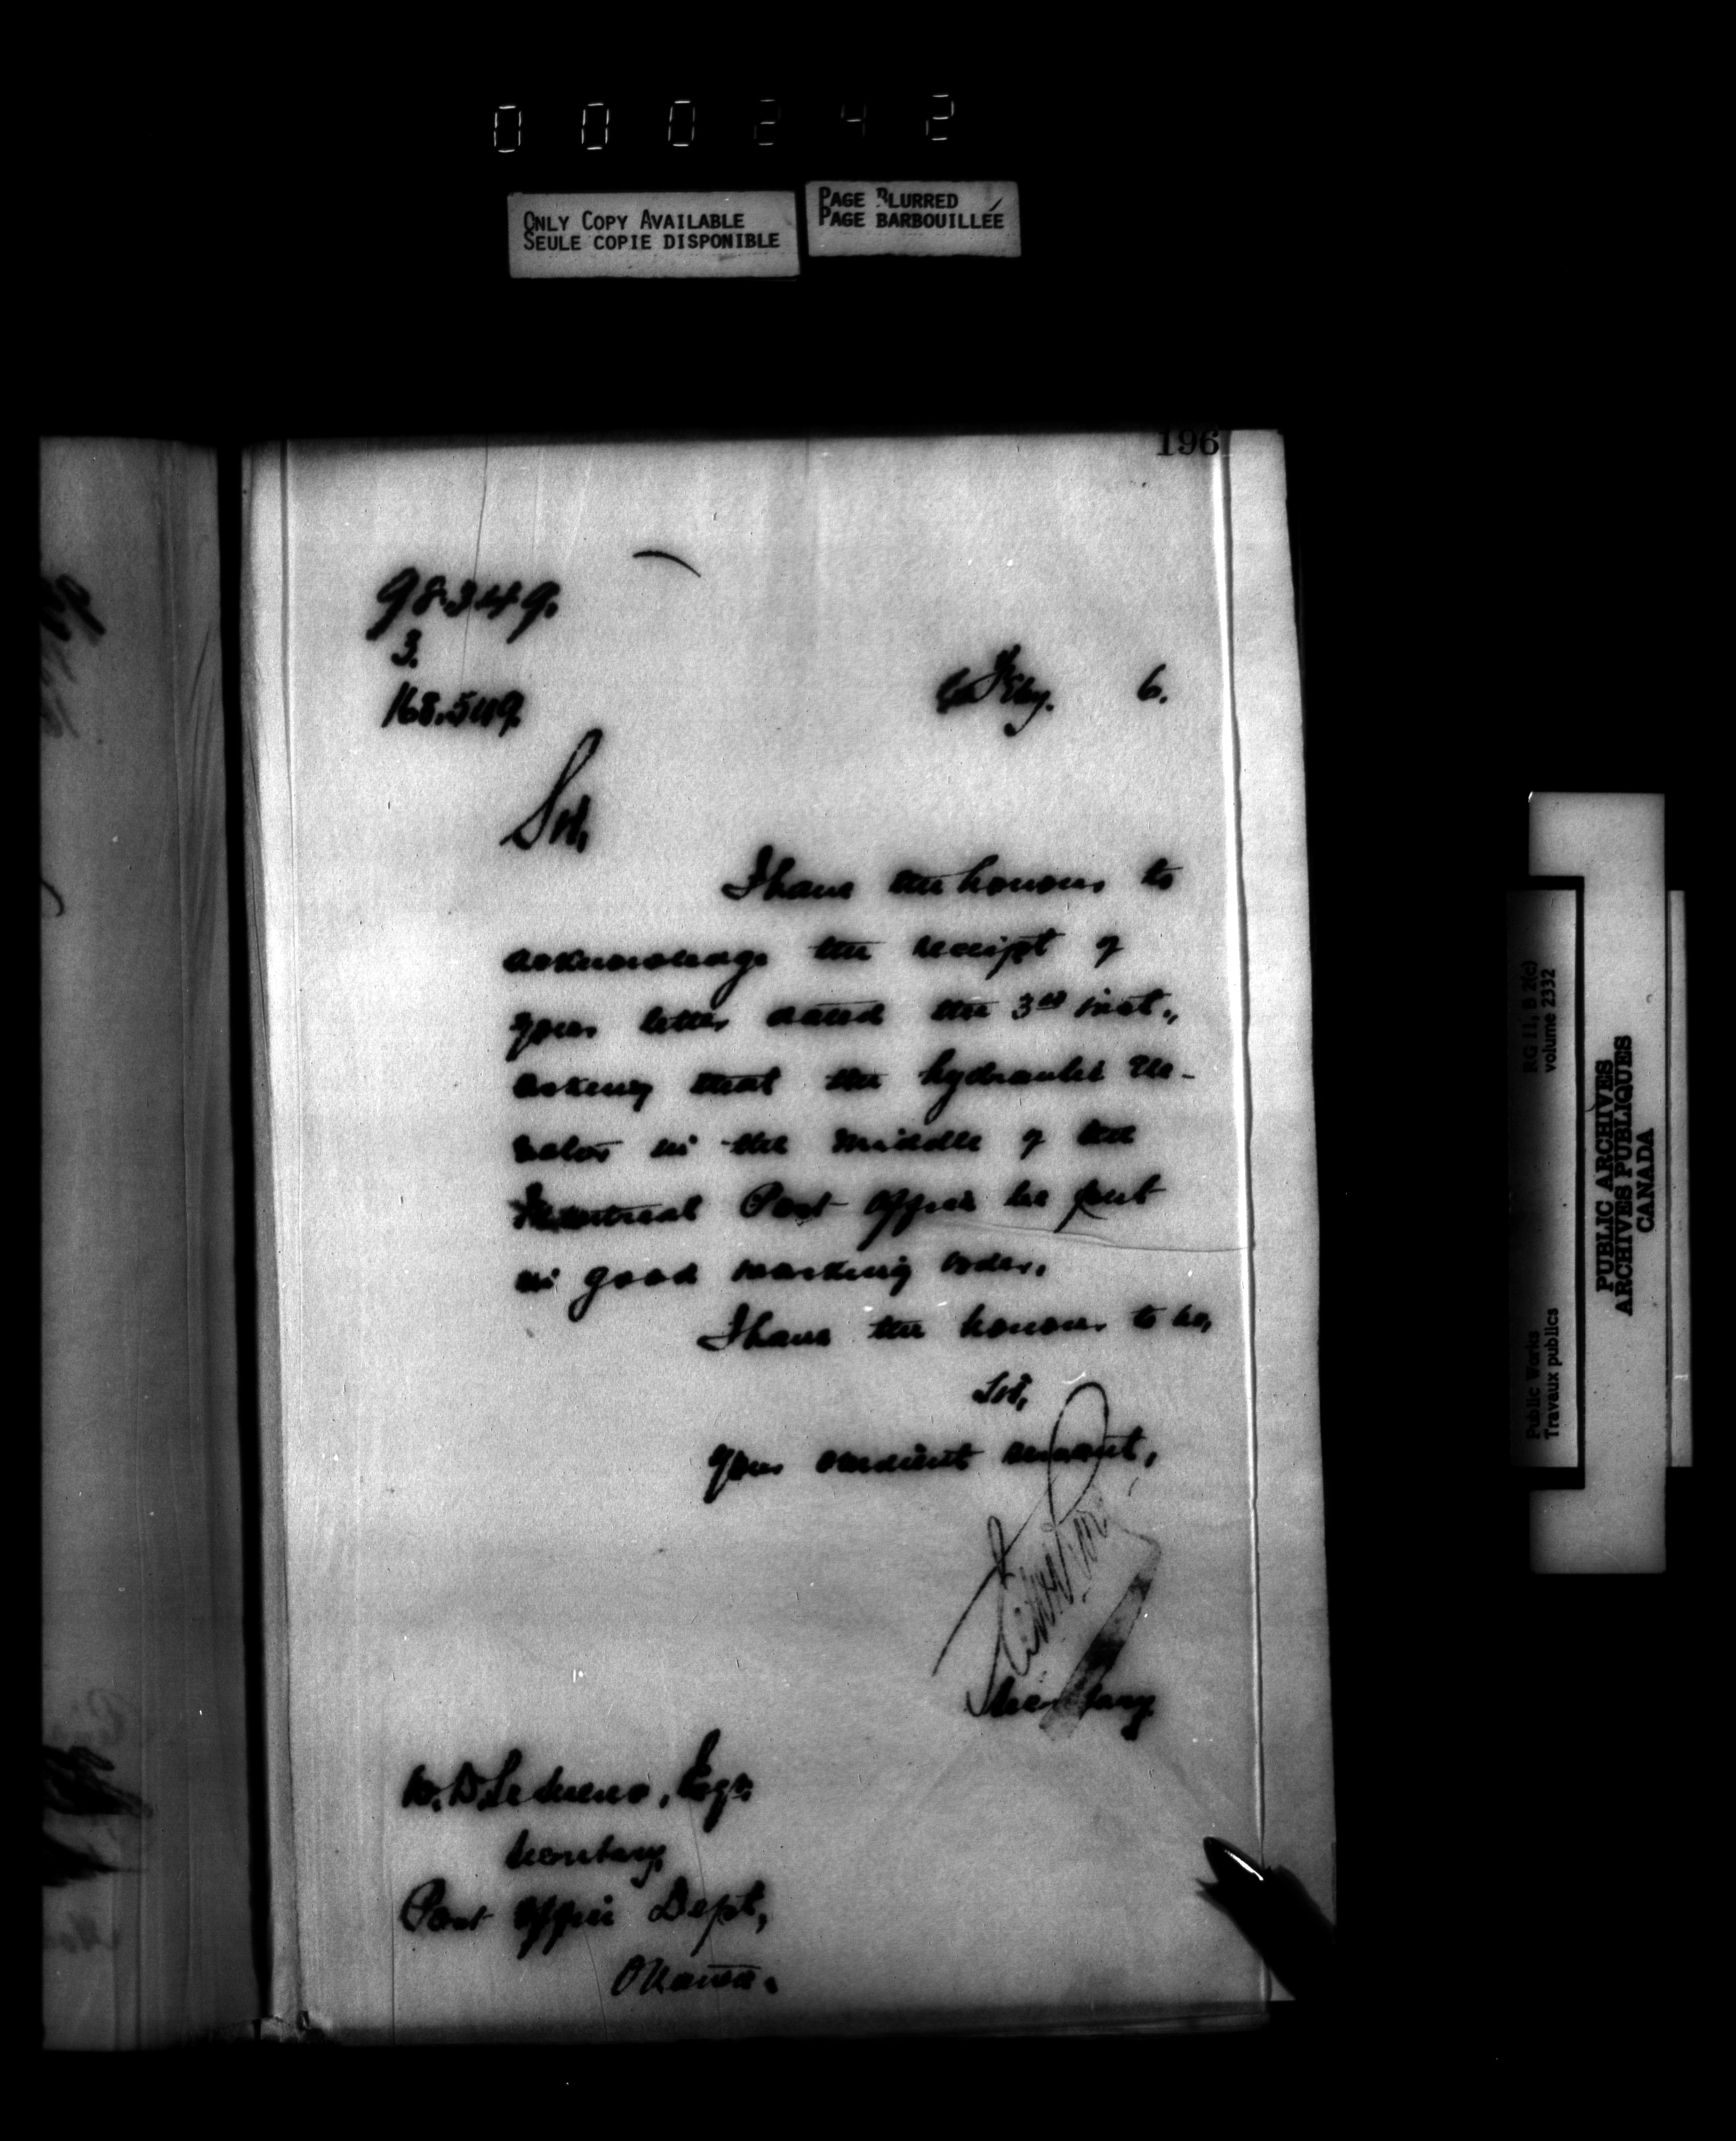 000242
ONLY COPY AVAILABLE
SEULE COPIE DISPONIBLE
PAGE BLURRED
PAGE BARBOUILLÉE
196
98349.
3.
168.549.
Feby. 6.
Sir,
I have the honour to
acknowledge the receipt of
your letter dated the 3rd inst.,
asking that the hydraulic ele-
vator in the middle of the
Montreal Post Office be put
in good working order.
I have the honour to be,
Sir,
Your obedient servant,
Secretary
W. D. LeSueur, Esqr.
Secretary,
Post Office Dept,
Ottawa.
RG 11, B 2(c)
volume 2332
Public Works
Travaux publics
PUBLIC ARCHIVES
ARCHIVES PUBLIQUES
CANADA